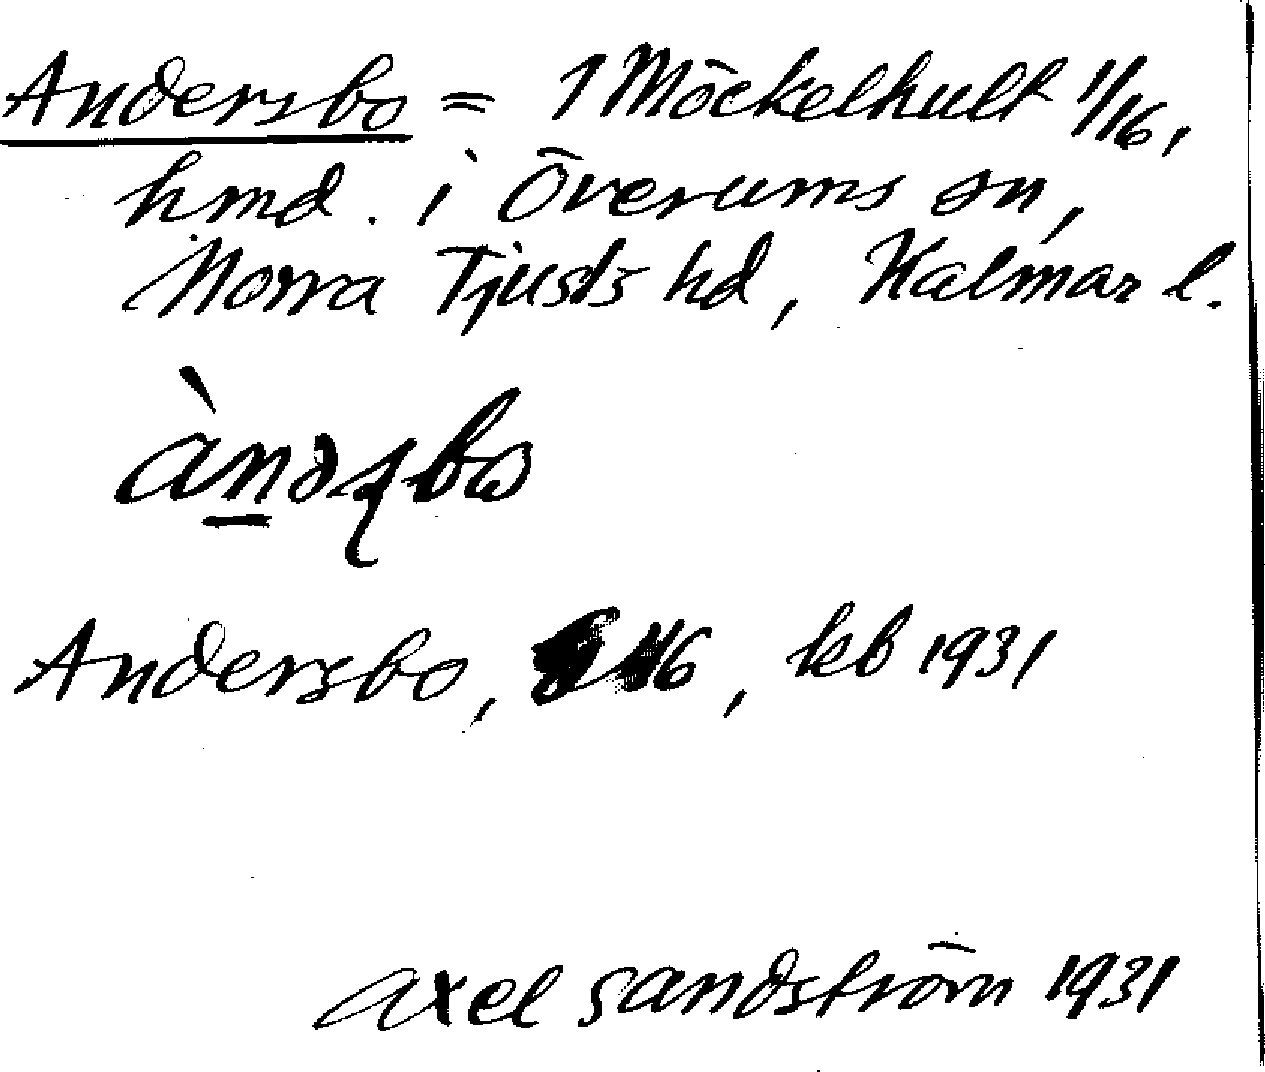 Andersbo = 1 Möckelhult 1/16,
hmd. i Överums sn,
Norra Tjusts hd, Kalmar l.
Andersbo, 16, kb 1931
Axel Sandström 1931